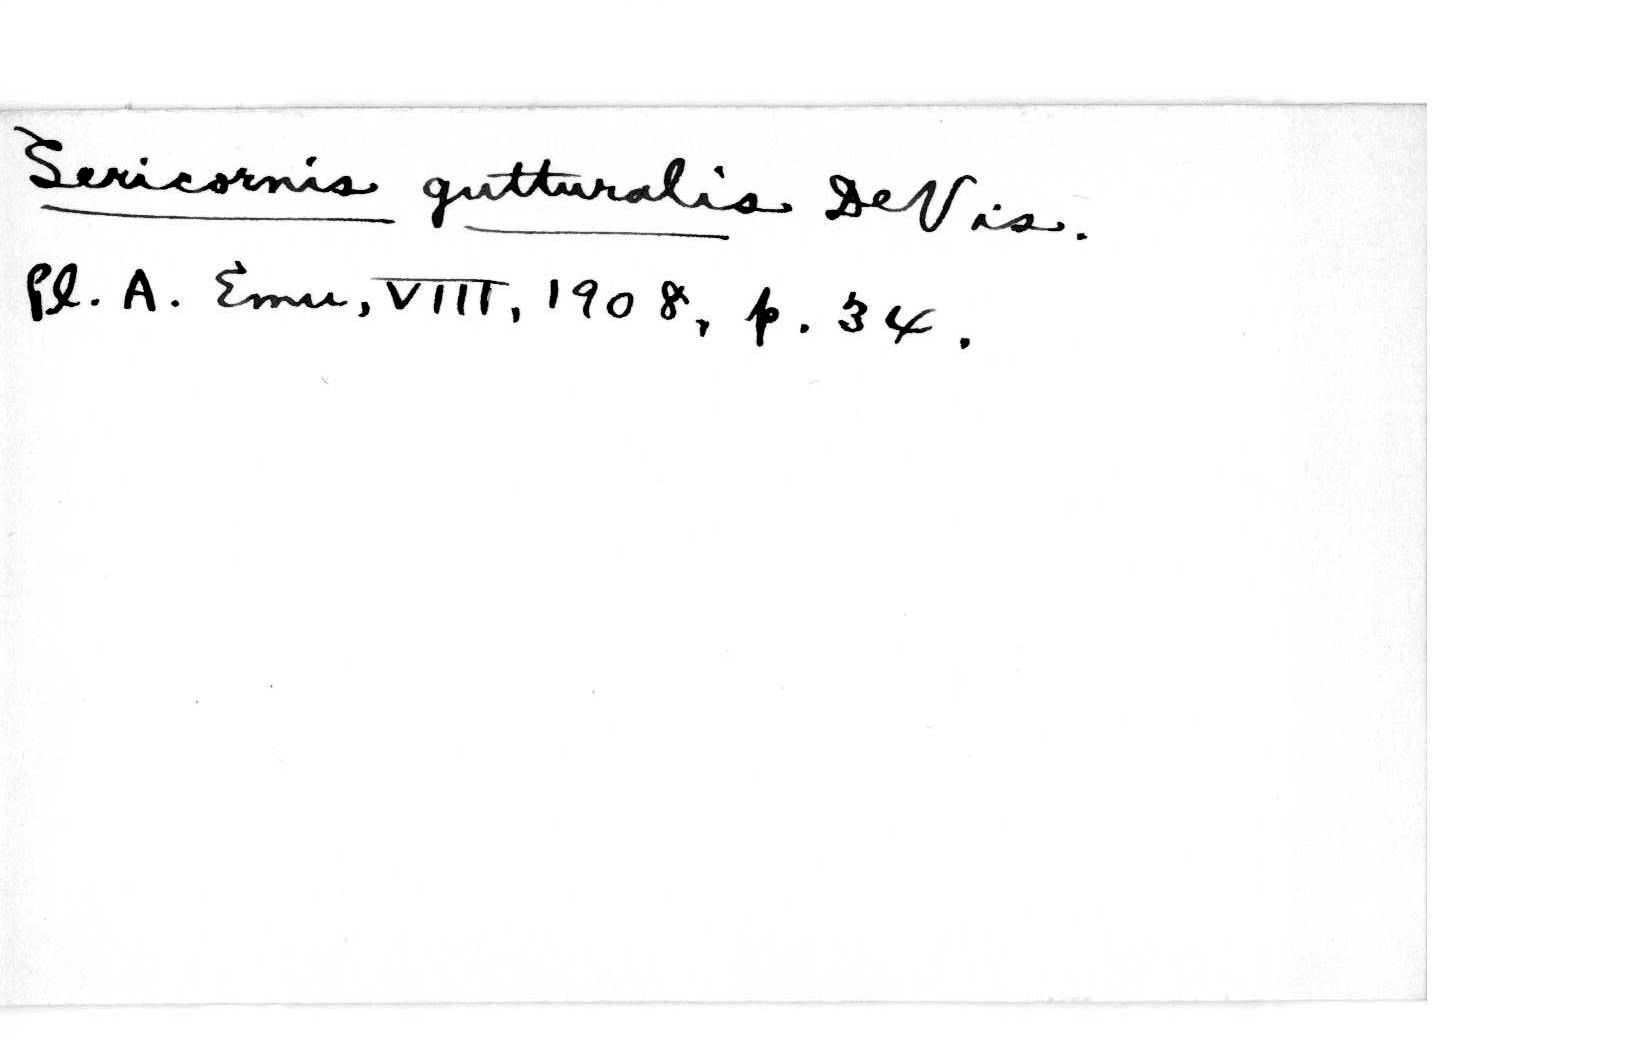 Sericornis gutturalis De Vis.
Pl. A. Emu, VIII, 1908, p. 34.